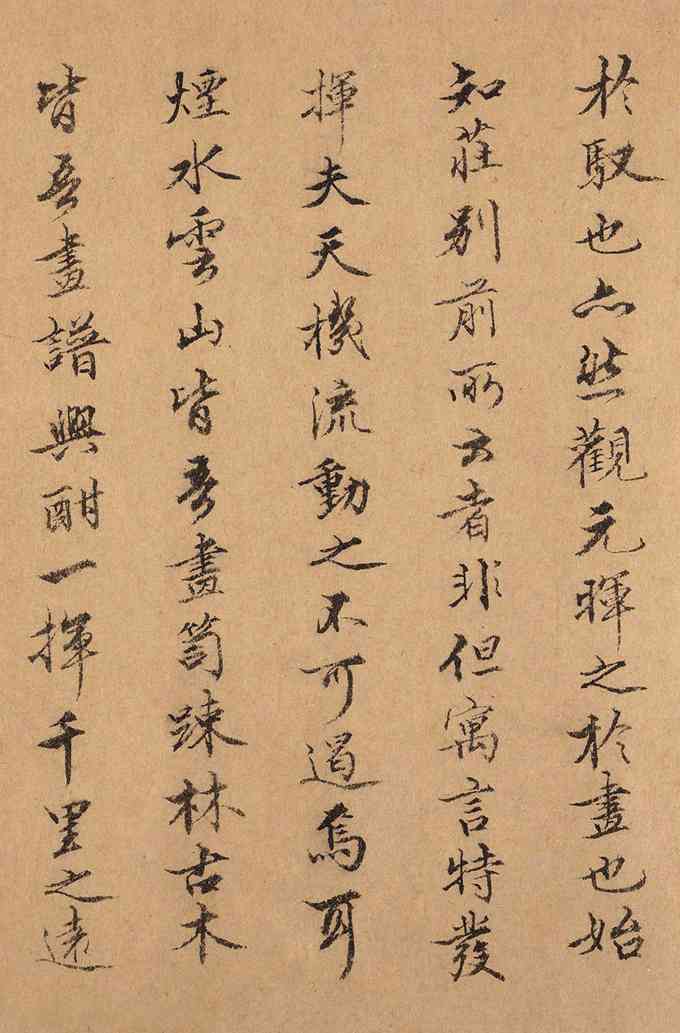 於馭也亦然觀元暉之於畫也始
知莊列前所云者非但寓言特發
揮夫天機流動之不可遏焉耳
煙水雲山皆吾畫笥踈林古木
皆吾畫譜興酣一揮千里之遠